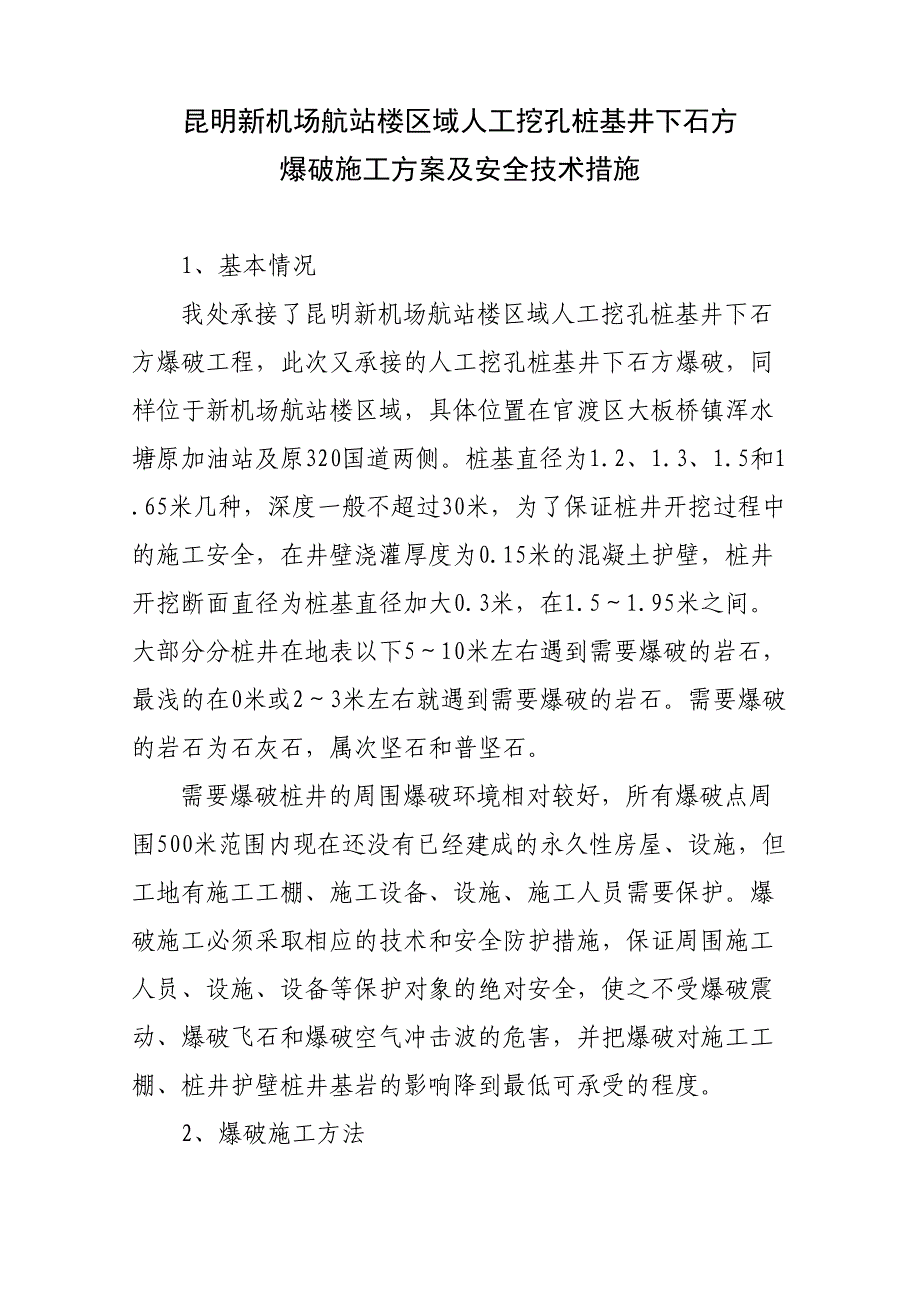 昆明新机场航站楼区域人工挖孔桩基井下石方
爆破施工方案及安全技术措施
1、基本情况
我处承接了昆明新机场航站楼区域人工挖孔桩基井下石
方爆破工程，此次又承接的人工挖孔桩基井下石方爆破，同
样位于新机场航站楼区域，具体位置在官渡区大板桥镇浑水
塘原加油站及原320国道两侧。桩基直径为1.2、1.3、1.5和1
.65米几种，深度一般不超过30米，为了保证桩井开挖过程中
的施工安全，在井壁浇灌厚度为0.15米的混凝土护壁，桩井
开挖断面直径为桩基直径加大0.3米，在1.5～1.95米之间。
大部分分桩井在地表以下5～10米左右遇到需要爆破的岩石，
最浅的在0米或2～3米左右就遇到需要爆破的岩石。需要爆破
的岩石为石灰石，属次坚石和普坚石。
需要爆破桩井的周围爆破环境相对较好，所有爆破点周
围500米范围内现在还没有已经建成的永久性房屋、设施，但
工地有施工工棚、施工设备、设施、施工人员需要保护。爆
破施工必须采取相应的技术和安全防护措施，保证周围施工
人员、设施、设备等保护对象的绝对安全，使之不受爆破震
动、爆破飞石和爆破空气冲击波的危害，并把爆破对施工工
棚、桩井护壁桩井基岩的影响降到最低可承受的程度。
2、爆破施工方法